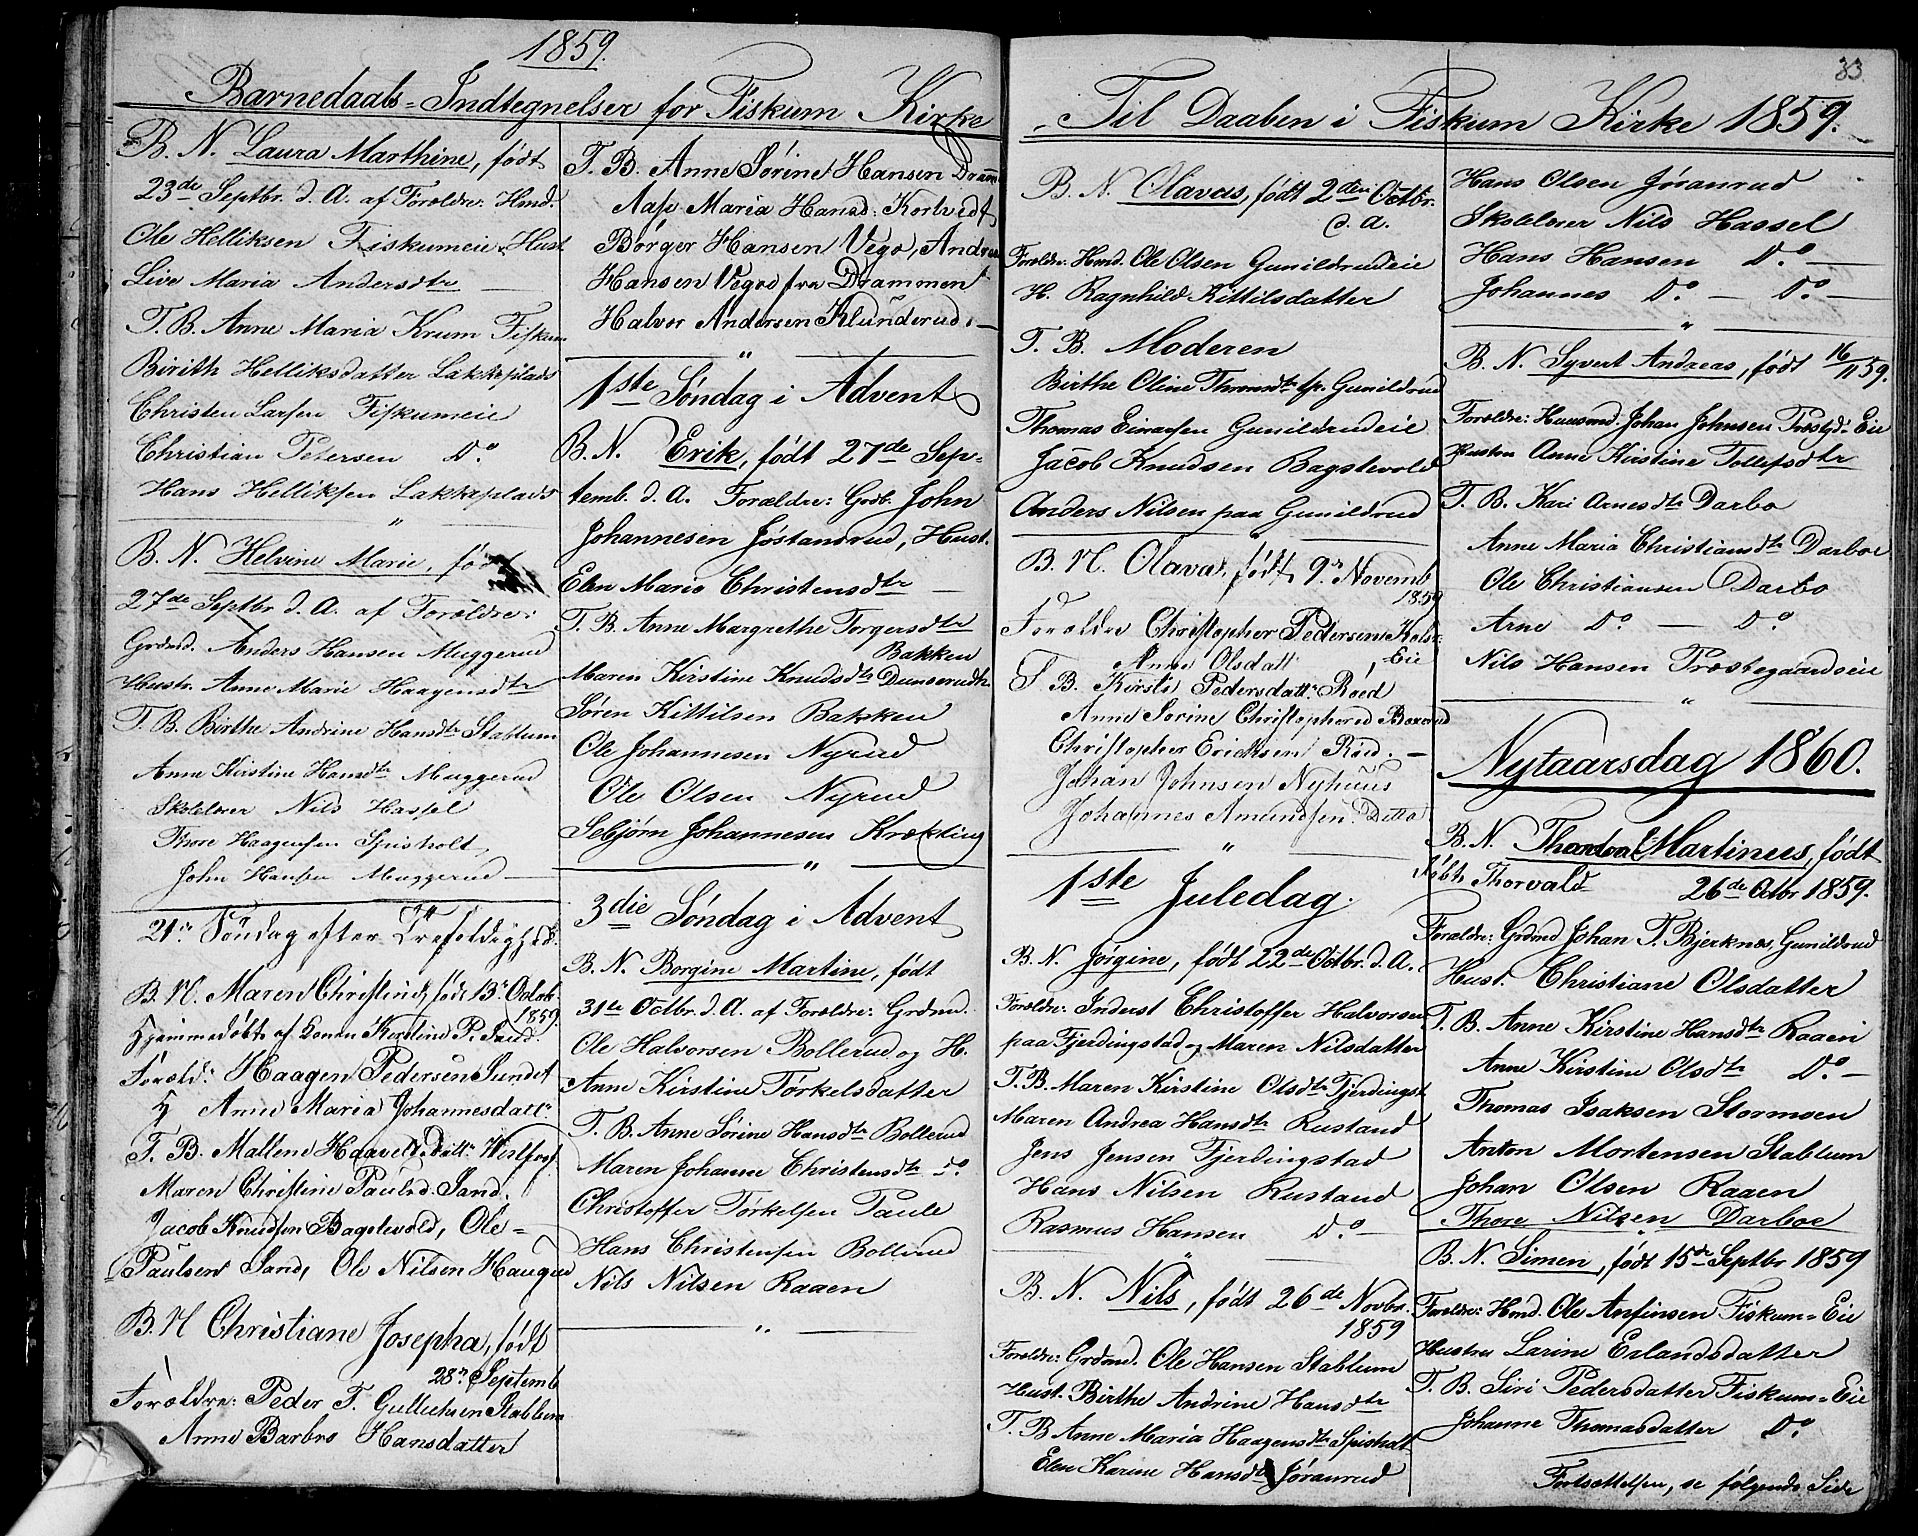 1859.
Barnedaabs-Indtegnelser for Fiskum Kirke
B. N. Laura Marthine, født
23de Septbr. d. A. af Forældre: Hmd.
Ole Helliksen Fiskumeie, Hust
Live Maria Andersdtr
T. B. Anne Maria Krum Fiskum
Birith Helliksdatter Lakkeplads
Christen Larsen Fiskumeie
Christian Petersen Do
Hans Helliksen Lakkeplads
B. N. Helvine Marie, født
27de Septbr. d. A. af Forældre:
Grdmd. Anders Hansen Muggerud
Hustr. Anne Marie Haagensdtr
T. B. Birthe Andrine Hansdtr Stablum
Anne Kirstine Hansdtr Muggerud
Skolelærer Nils Hassel
Thore Haagensen Spisholt
John Hansen Muggerud
21de Søndag efter Trefoldighed.
B. N. Maren Christine, født 13de Octob.
1859
Hjemmedøbt af Konen Kirstine P. Sand.
Foræld: Haagen Pedersen Sundet
H Anne Maria Johannesdatt:
T. B. Mallene Haavelsdatt:
Maren Christine Paulsd. Sand.
Jacob Knudsen Bagstevold, Ole
Paulsen Sand, Ole Nilsen Haugen
B. N Christiane Josepha, født
28de Septemb
Forældre: Peder T. Gulliksen Stablum
Anne Barbro Hansdatter
T. B. Anne Sørine Hansen Dramm
Aase Maria Hansd: Kortvedt
Børger Hansen Vego, Andreas
Hansen Vego fra Drammen
Halvor Andersen Klunderud.
1ste Søndag i Advent
B. N. Erik, født 27de Sep-
temb. d. A. Forældre: Grdb. John
Johannesen Jøstandrud, Hust.
Elen Maria Christensdtr
T. B. Anne Margrethe Torgersdtr
Bakken
Maren Kirstine Knudsdtr Dunserudh.
Søren Kittilsen Bakken
Ole Johannesen Nyrud
Ole Olsen Nyrud
Sebjørn Johannesen Krekling
3die Søndag i Advent
B. N. Borgine Martine, født
31te Octbr. d. A. af Forældre: Grdmd.
Ole Halvorsen Bollerud og H.
Anne Kirstine Torkelsdatter
T. B. Anne Sørine Hansdtr Bollerud
Maren Johanne Christensdtr Do
Christoffer Torkelsen Taule
Hans Christensen Bollerud
Nils Nilsen Raaen
33.
Til Daaben i Fiskum Kirke 1859.
B. N. Olaves, født 2den Octbr.
d. a.
Forældre: Hmd. Ole Olsen Gunildrudeie
H. Ragnhild Kittilsdatter
T. B. Moderen
Birthe Oline Thomsdtr Gunildrud
Thomas Einarsen Gunildrudeie
Jacob Knudsen Bagstevold
Anders Nilsen paa Gunildrud
B. N. Olava, født 9de Novemb
1859
Forældre Christopher Pedersen
Anne Olsdatt: , Eie
T. B. Kirsti Pedersdatt: Røed
Anne Sørine Christophersd
Christopher Ericksen Røed.
Johan Johnsen Nyhuus
Johannes Amundsen Ditto
1ste Juledag.
B. N. Jørgine, født 22de Octbr. d. A.
Forældre: Inderst Christoffer Halvorsen
paa Fjerdingstad og Maren Nilsdatter
T. B. Maren Kirstine Olsdtr Fjerdingst
Maren Andrea Hansdtr Rustand
Jens Jensen Fjerdingstad
Hans Nilsen Rustand
Rasmus Hansen Do
B. N. Nils, født 26de Novbr.
1859
Forældre: Grdmd. Ole Hansen Stablum
Hust. Birthe Andrine Hansdtr
T. B Anne Maria Haagensdtr Spisholt
Elen Karine Hansdtr Jøranrud
Hans Olsen Jøranrud
Skolelærer Nils Hassel
Hans Hansen Do
Johannes Do Do
B. N. Syvert Andreas, født 16/11 59.
Forældre: Huusmd. Johan Johnsen Præstgd: Eie
Hustru Anne Kirstine Tollefsdtr
T. B. Kari Arnesdtr Darbo
Anne Maria Christiansdtr Darboe
Ole Christiansen Darbo
Arne Do Do
Nils Hansen Præstegaardseie
Nytaarsdag 1860.
B. N. Martinius, født
Døbt Thorvald 26de Octbr 1859.
Forældre: Grdmd Johan T. Bjerknes, Gunildrud
Hust. Christiane Olsdatter
T. B. Anne Kirstine Hansdtr Raaen
Anne Kirstine Olsdtr Do
Thomas Isaksen Stormoen
Anton Mortensen Stablum
Johan Olsen Raaen
Thore Nilsen Darboe
B. N. Simen, født 15de Septbr 1859
Forældre: Hmd. Ole Anfinsen Fiskum-Eie
Hustru Larine Erlandsdatter
T. B. Siri Pedersdatter Fiskum-Eie
Johanne Thomasdatter Do
Fortsættelsen, se følgende Side